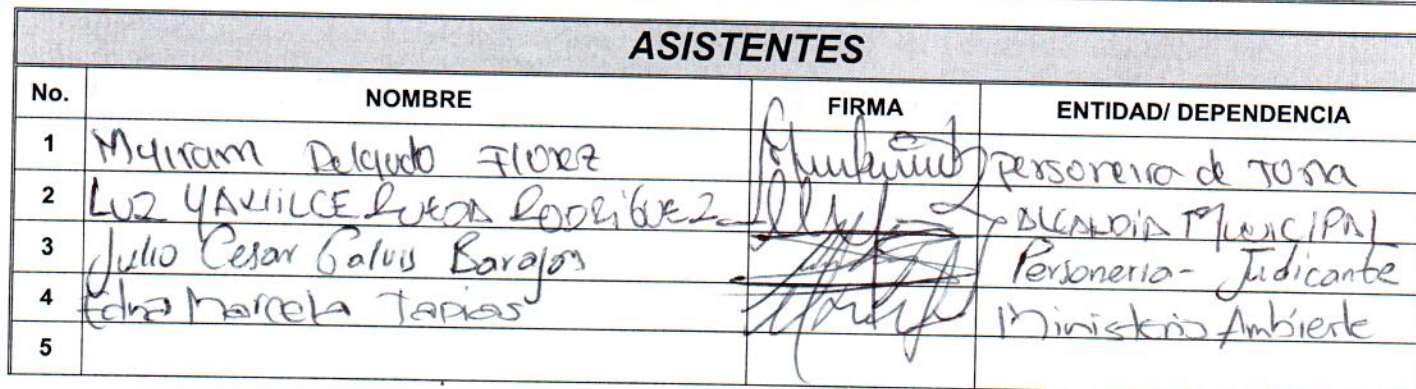 ASISTENTES
No. NOMBRE FIRMA ENTIDAD/ DEPENDENCIA
1 Myiram Delgado Florez personeria de Tona
2 LUZ YAHILCE RUEDA RODRIGUEZ ALCALDIA MUNICIPAL
3 Julio Cesar Galvis Barajas Personeria - Judicante
4 Edna Marcela Tapias Ministerio Ambiente
5